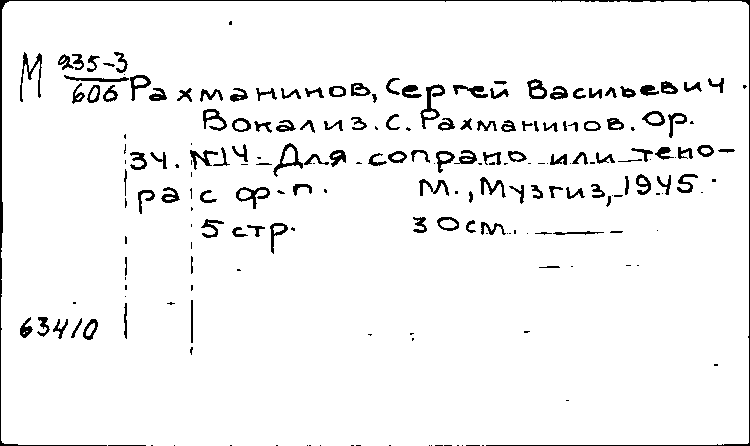 М 235-3
606 Рахманинов, Сергей Васильевич.
Вокализ. С. Рахманинов. Ор.
34. №14. Для сопрано или тено-
ра с ф-п. М., Музгиз, 1945.
5 стр. 30см.
63410